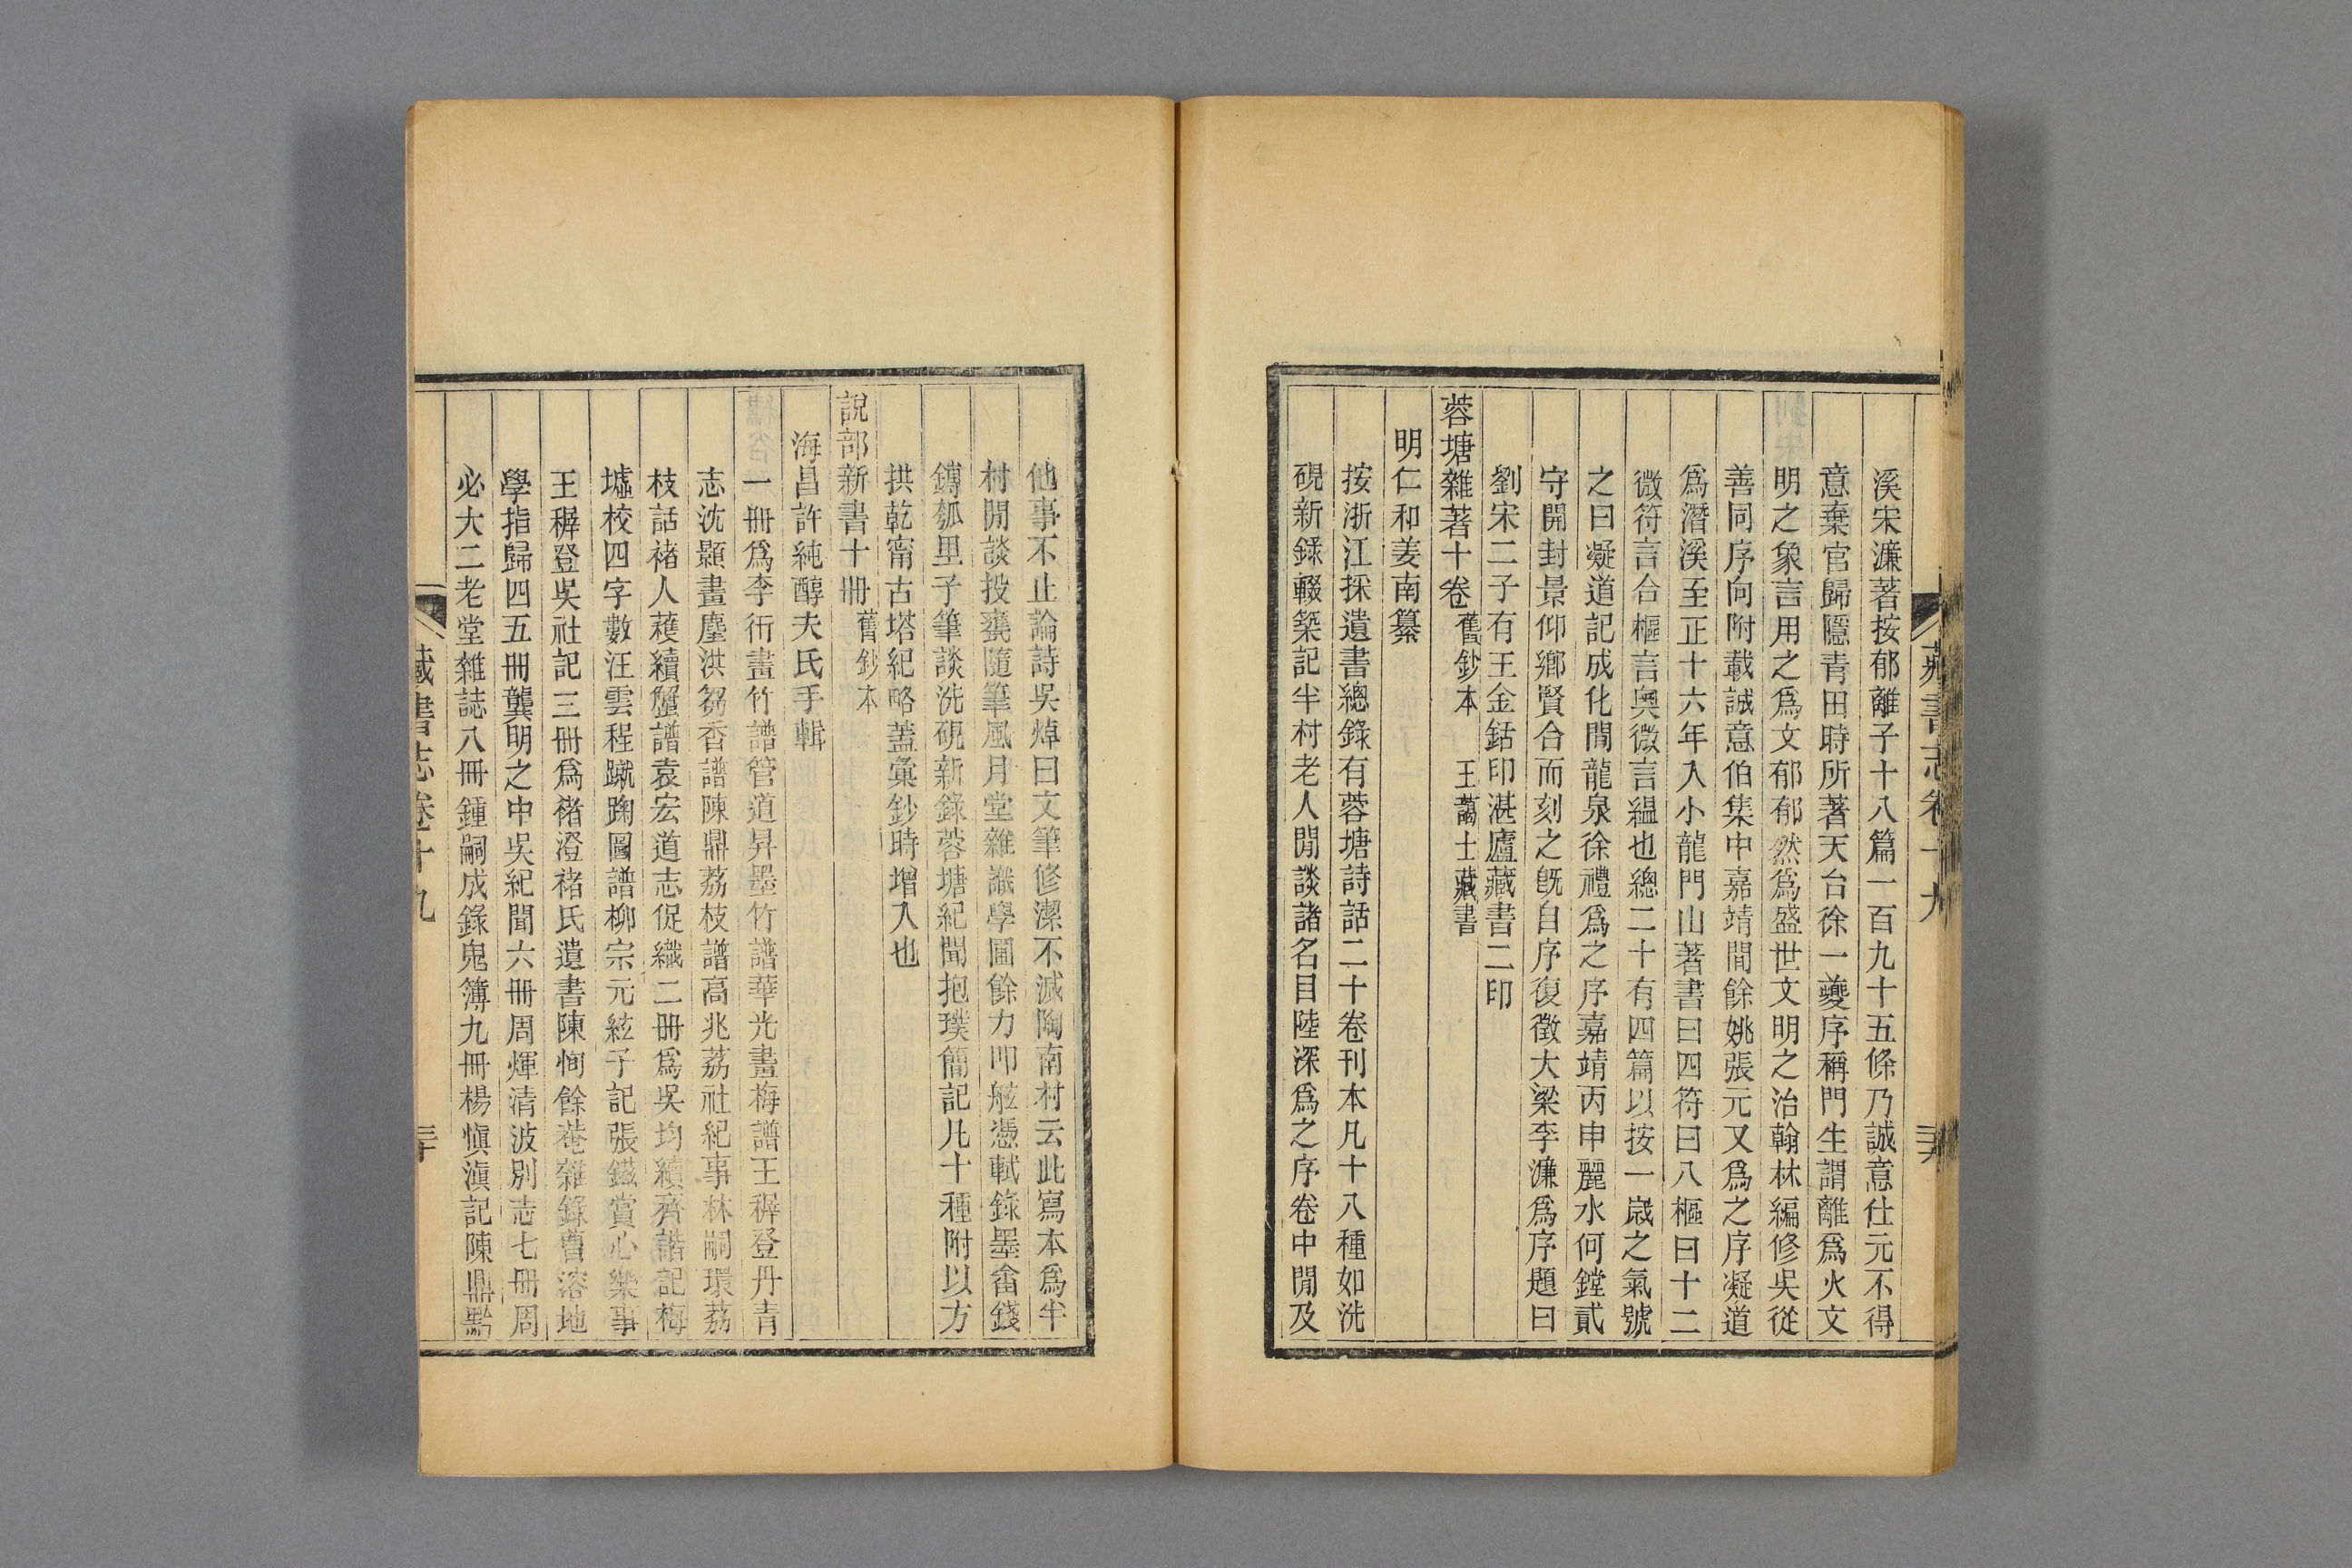 溪宋濂著按郁離子十八篇一百九十五條乃誠意仕元不得
意棄官歸隱青田時所著天台徐一夔序稱門生謂離爲火文
明之象言用之爲文郁郁然爲盛世文明之治翰林編修吳從
善同序向附載誠意伯集中嘉靖間餘姚張元又爲之序凝道
爲潛溪至正十六年入小龍門山著書曰四符曰八樞曰十二
微符言合樞言奧微言縕也總二十有四篇以按一歲之氣號
之曰凝道記成化間龍泉徐禮爲之序嘉靖丙申麗水何鏜貳
守開封景仰鄉賢合而刻之旣自序復徵大梁李濂爲序題曰
劉宋二子有王金銛印湛廬藏書二印
蓉塘雜著十卷舊鈔本 王藹士藏書
明仁和姜南纂
按浙江採遺書總錄有蓉塘詩話二十卷刊本凡十八種如洗
硯新錄輟築記半村老人閒談諸名目陸深爲之序卷中閒及
他事不止論詩吳焯曰文筆修潔不減陶南村云此寫本爲半
村閒談投甕隨筆風月堂雜識學圃餘力叩舷憑軾錄墨畬錢
鎛瓠里子筆談洗硯新錄蓉塘紀聞抱璞簡記凡十種附以方
拱乾甯古塔紀略蓋彙鈔時增入也
說部新書十冊舊鈔本
海昌許純醇夫氏手輯
一冊爲李衎畫竹譜管道昇墨竹譜華光畫梅譜王穉登丹青
志沈顥畫塵洪芻香譜陳鼎荔枝譜高兆荔社紀事林嗣環荔
枝話褚人蘐續蟹譜袁宏道志促織二冊爲吳均續齊諧記梅
墟校四字數汪雲程蹴踘圖譜柳宗元絃子記張鐵賞心樂事
王穉登吳社記三冊爲褚澄褚氏遺書陳恂餘菴雜錄曹溶地
學指歸四五冊龔明之中吳紀聞六冊周煇清波別志七冊周
必大二老堂雜誌八冊鍾嗣成錄鬼簿九冊楊愼滇記陳鼎黔
藏書志卷十九